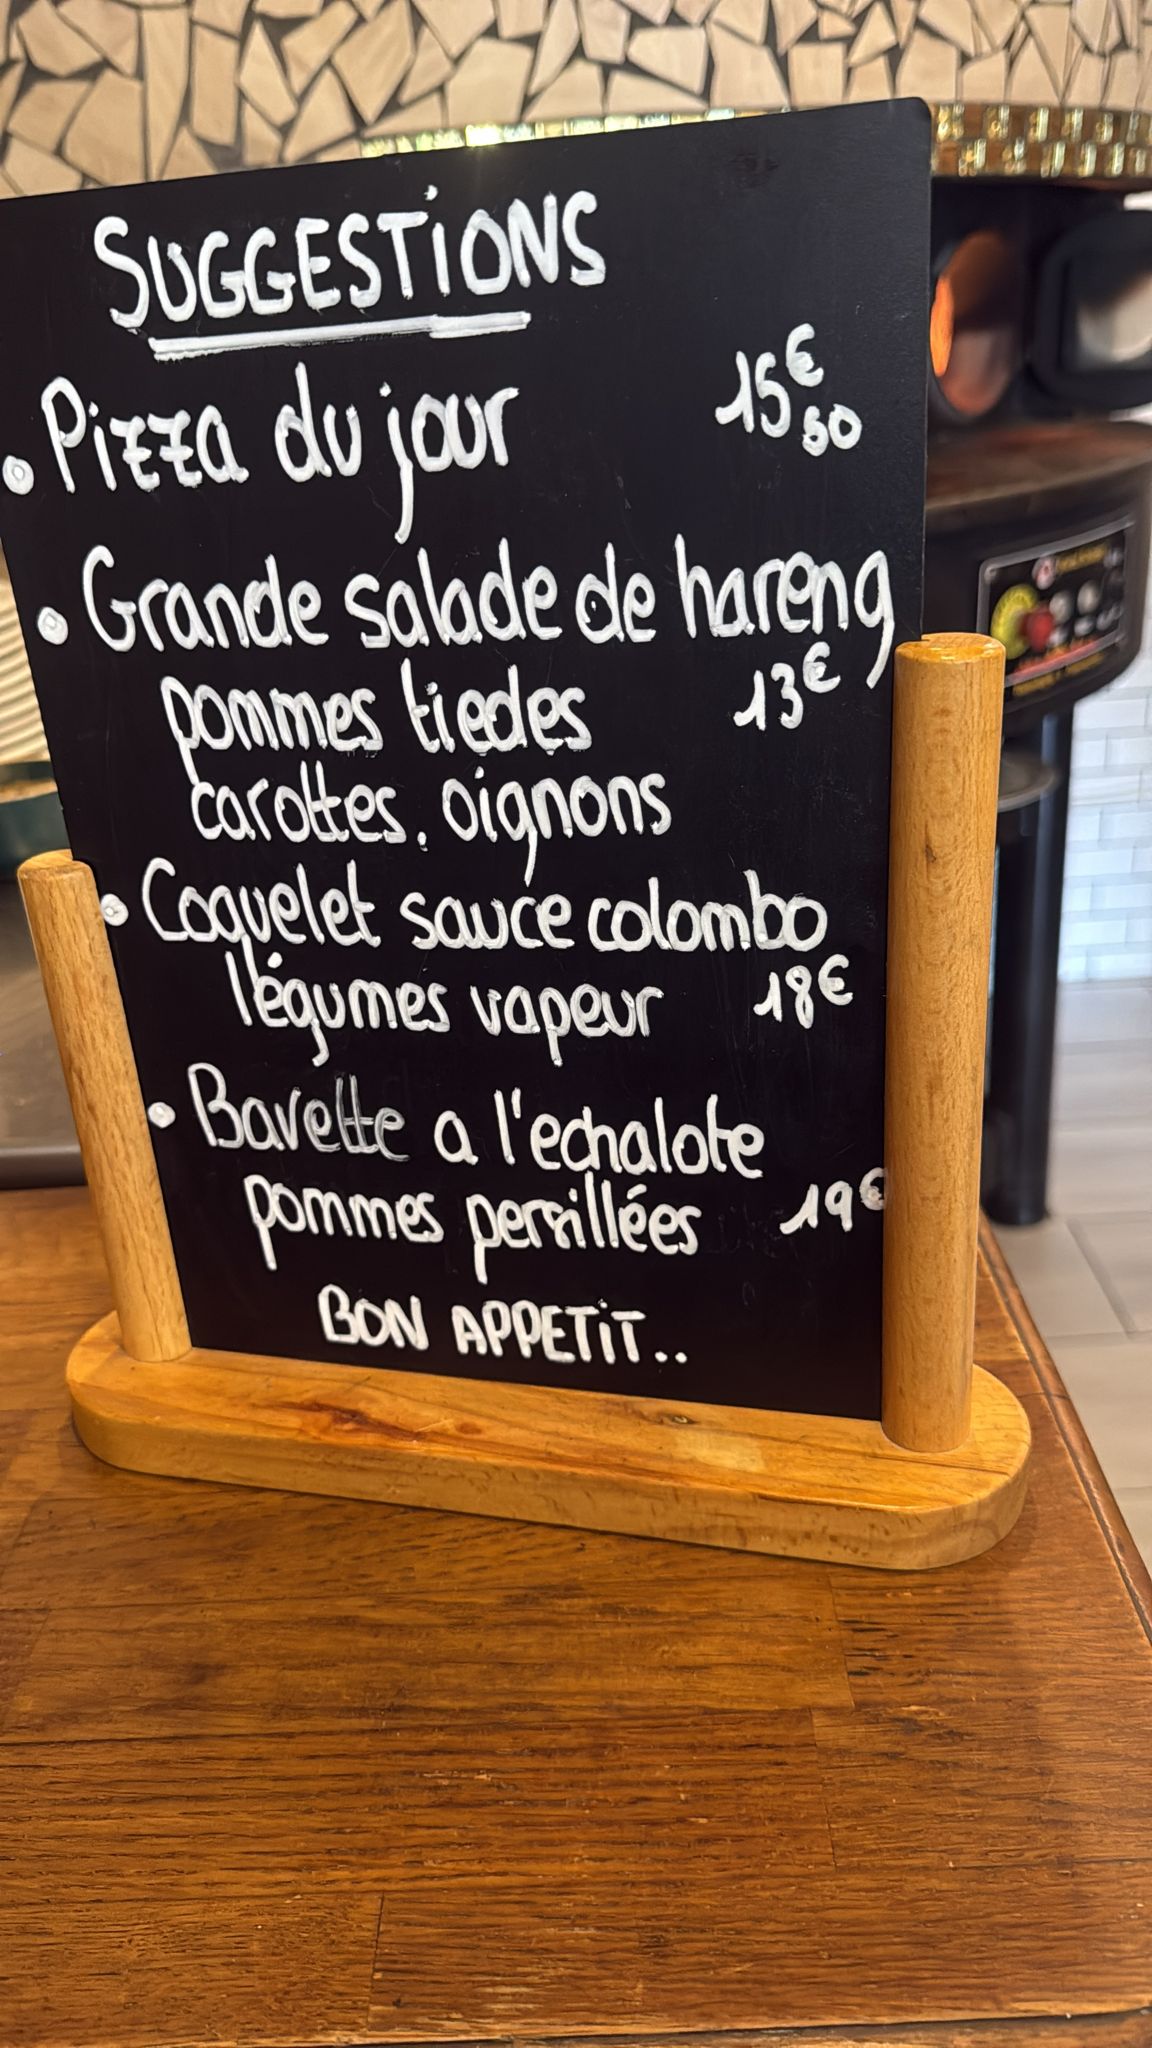 SUGGESTIONS
• Pizza du jour 15€50
• Grande salade de hareng
pommes tiedes 13€
carottes, oignons
• Coquelet sauce colombo
légumes vapeur 18€
• Bavette a l'echalote
pommes persillées 19€
BON APPETIT..